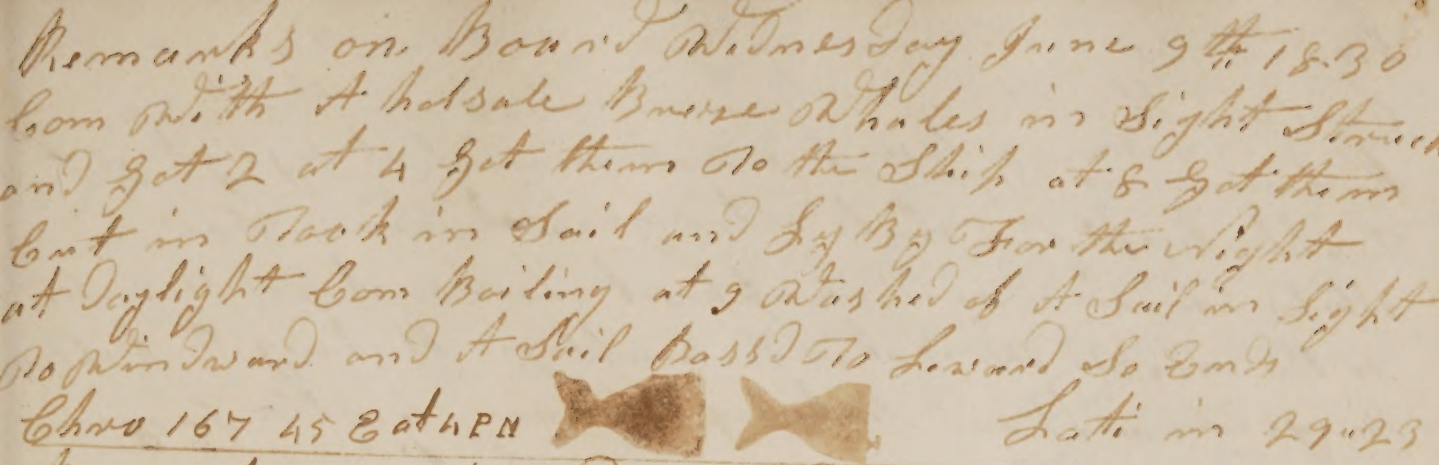 Remarks on Board Wednesday June 9th 1830
Com With A holsale Breese Whales in Sight Struck
and Got 2 at 4 Got them To the Ship at 8 Got them
Cut in Took in Sail and Ly By For the Night
at Daylight Com Boiling at 9 Washed of A Sail in Sight
To Windward and A Sail Passd To Leward So Ends
Chro 167 45 E at 4 PM Lati in 29"23